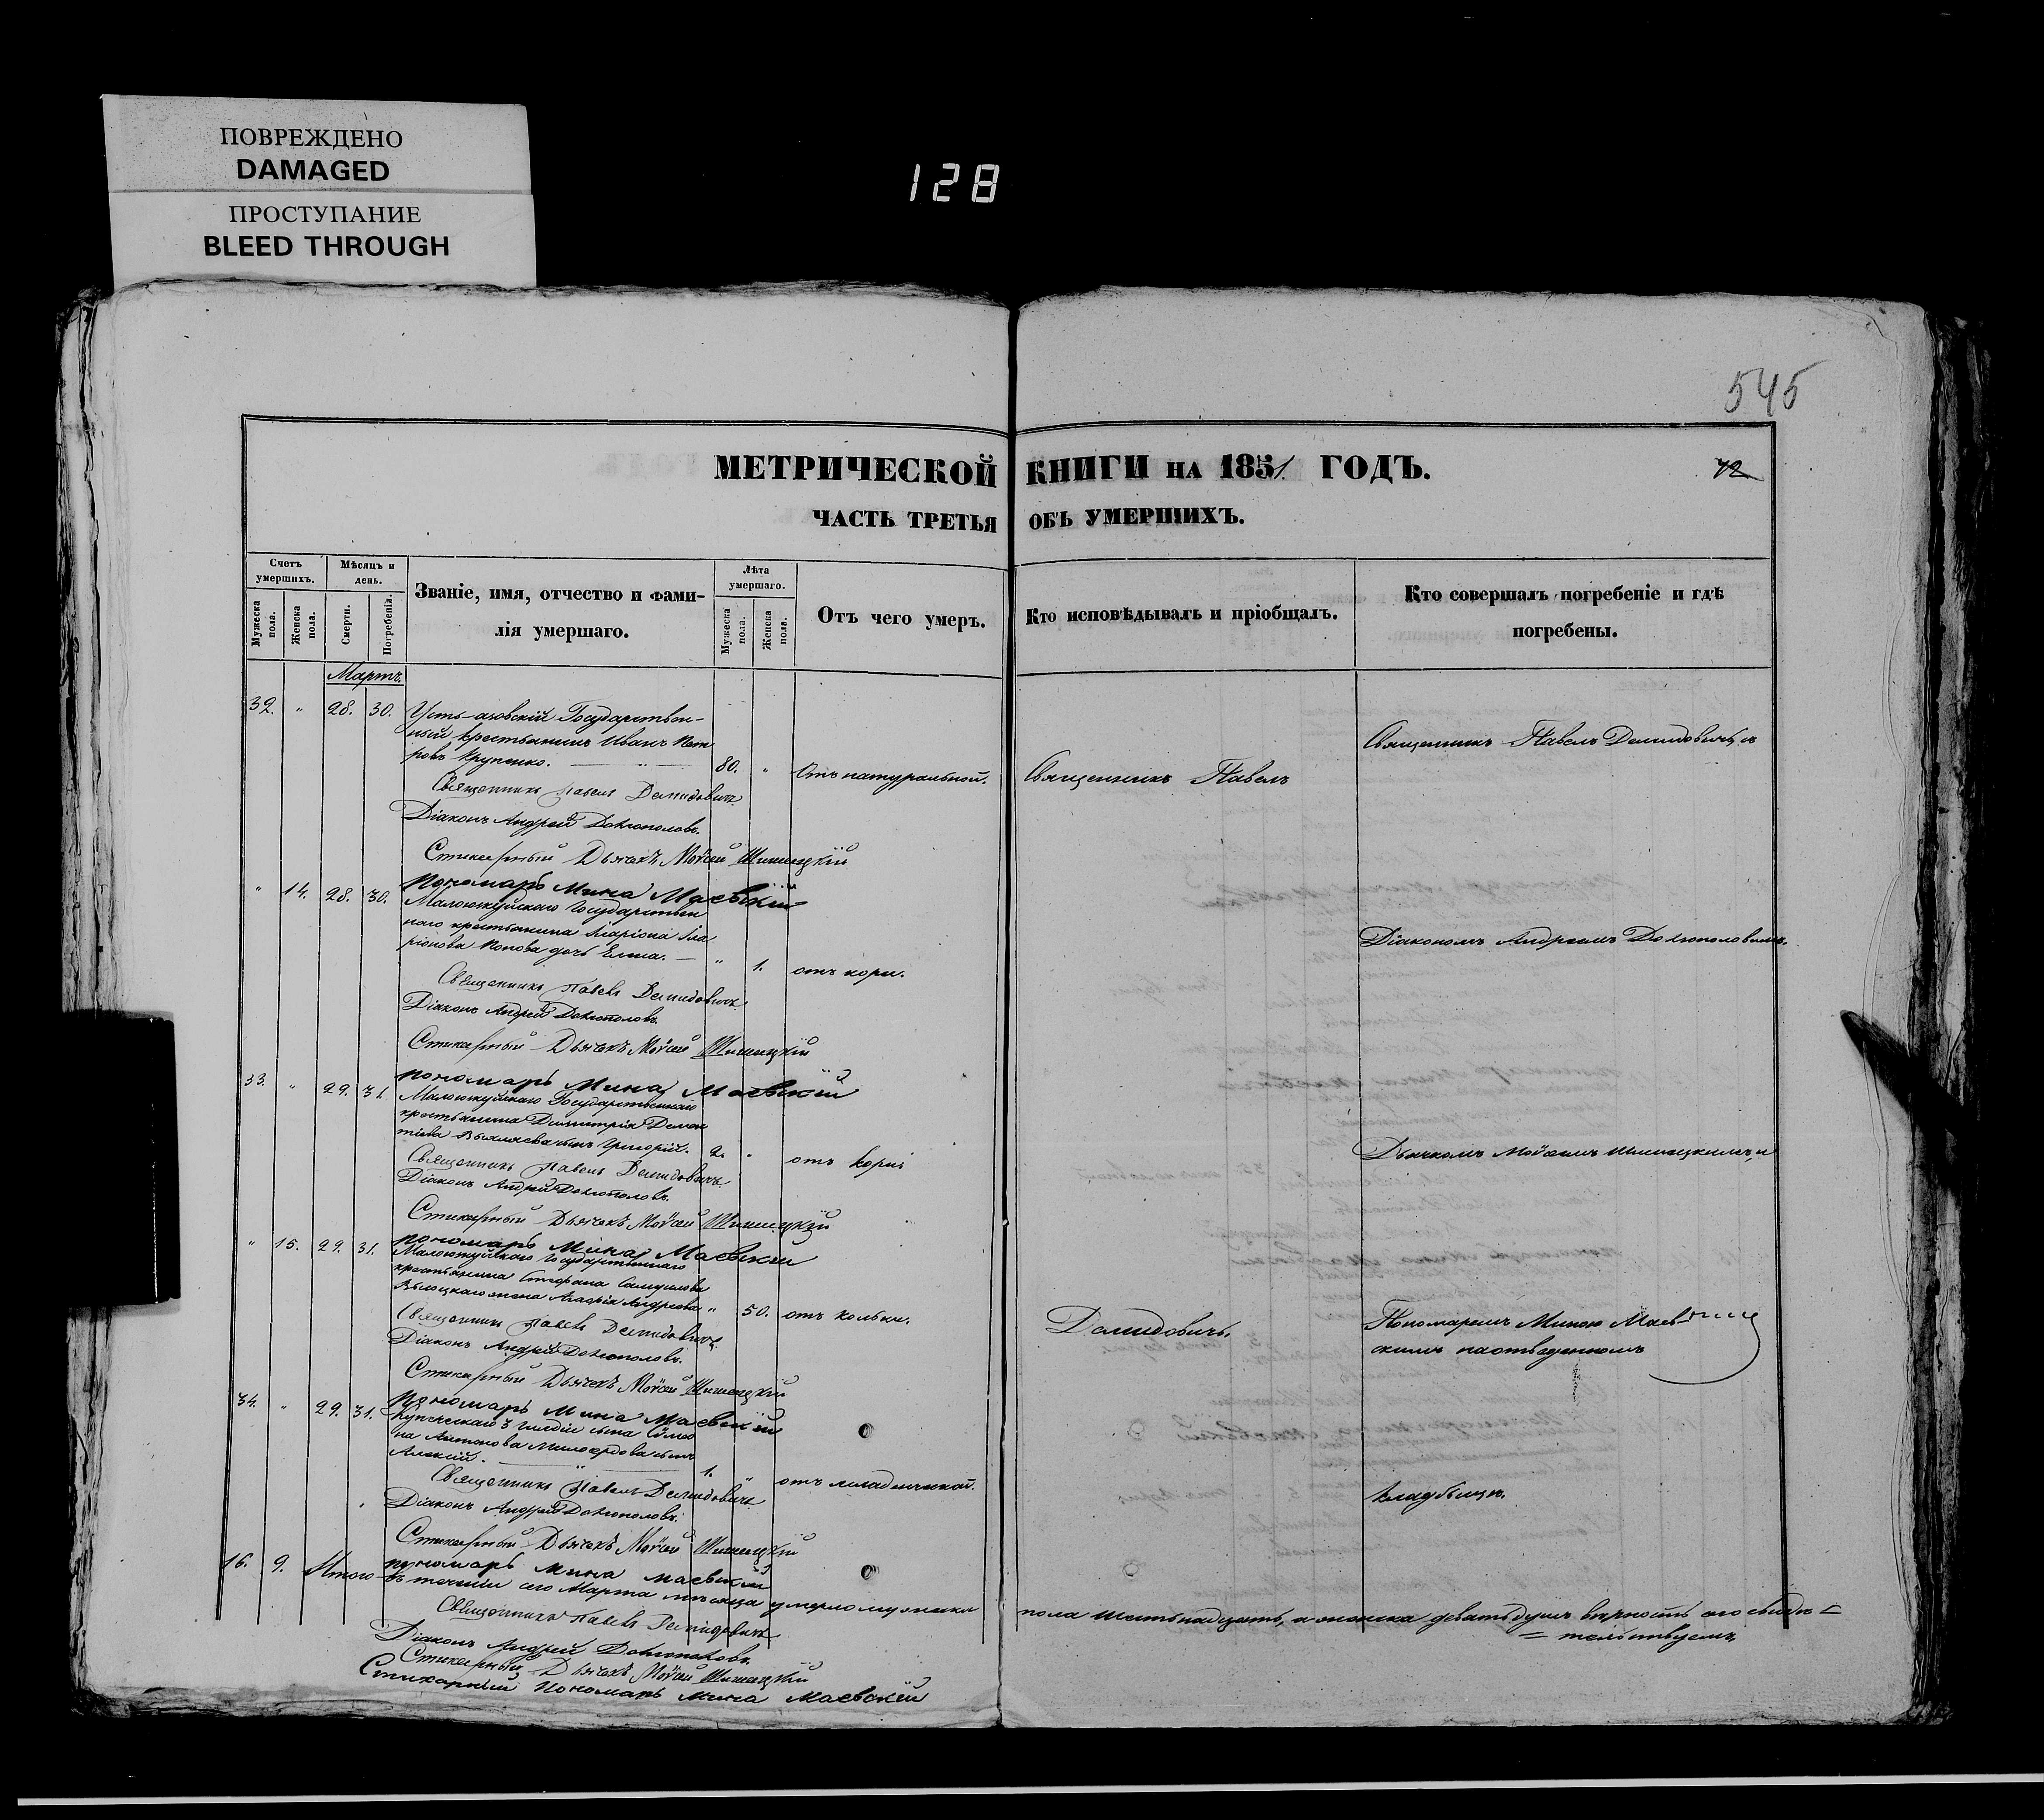 ПОВРЕЖДЕНО
DAMAGED
ПРОСТУПАНИЕ
BLEED THROUGH
128
545
МЕТРИЧЕСКОЙ КНИГИ НА 1851 ГОДЪ.
12
ЧАСТЬ ТРЕТЬЯ ОБЪ УМЕРШИХЪ.
Счетъ умершихъ.
Мужеска пола.
Женска пола.
Мѣсяцъ и день.
Смерти.
Погребенія.
Званіе, имя, отчество и фами-
лія умершаго.
Лѣта умершаго.
Мужеска пола.
Женска пола.
Отъ чего умеръ.
Кто исповѣдывалъ и пріобщалъ.
Кто совершалъ погребеніе и гдѣ
погребены.
Мартъ.
32. " 28. 30. Усть-азовскій Государствен-
ный крестьянинъ Иванъ Пет
ровъ Крупенко. 80. " Отъ натуральной. Священникъ Павелъ
Священникъ Павелъ Демидовичъ и
Священникъ Павелъ Демидовичъ
Діаконъ Андрей
Стихарный Дьячекъ Моѵсей Шишацкій
Пономарь Мина Маевскій
" 14. 28. 30. Государствен
наго крестьянина Иларіона Ила
ріонова Попова дочь Елена. " 1. отъ кори.
Діакономъ Андреемъ
Священникъ Павелъ Демидовичъ
Діаконъ Андрей
Стихарный Дьячекъ Моѵсей Шишацкій
Пономарь Мина Маевскій
33. " 29. 31. Государственнаго
крестьянина Димитрія Демен
тіева сынъ Григорій. 2. " отъ кори
Дьячкомъ Моѵсеемъ Шишацкимъ, и
Священникъ Павелъ Демидовичъ
Діаконъ Андрей
Стихарный Дьячекъ Моѵсей Шишацкій
Пономарь Мина Маевскій
" 15. 29. 31. Государственнаго
крестьянина Стефана Самуилова
Высоцкаго жена Агафія Андреева " 50. отъ кольки.
Демидовичъ.
Пономаремъ Миною Маев-
скимъ на отведенномъ
Священникъ Павелъ Демидовичъ
Діаконъ Андрей
Стихарный Дьячекъ Моѵсей Шишацкій
Пономарь Мина Маевскій
34. " 29. 31. Купеческаго 3 гильдіи сына Симео
на Антонова Милосердова сынъ
Алексій. 1. " отъ младенческой.
кладбищѣ.
Священникъ Павелъ Демидовичъ
Діаконъ Андрей
Стихарный Дьячекъ Моѵсей Шишацкій
Пономарь Мина Маевскій
16. 9. Итого въ теченіи сего Марта мѣсяца умерло мужеска пола шестьнадцать, а женска девять душъ вѣрность сего свидѣ=
=тельствуемъ,
Священникъ Павелъ Демидовичъ
Діаконъ Андрей
Стихарный Дьячекъ Моѵсей Шишацкій
Стихарный Пономарь Мина Маевскій